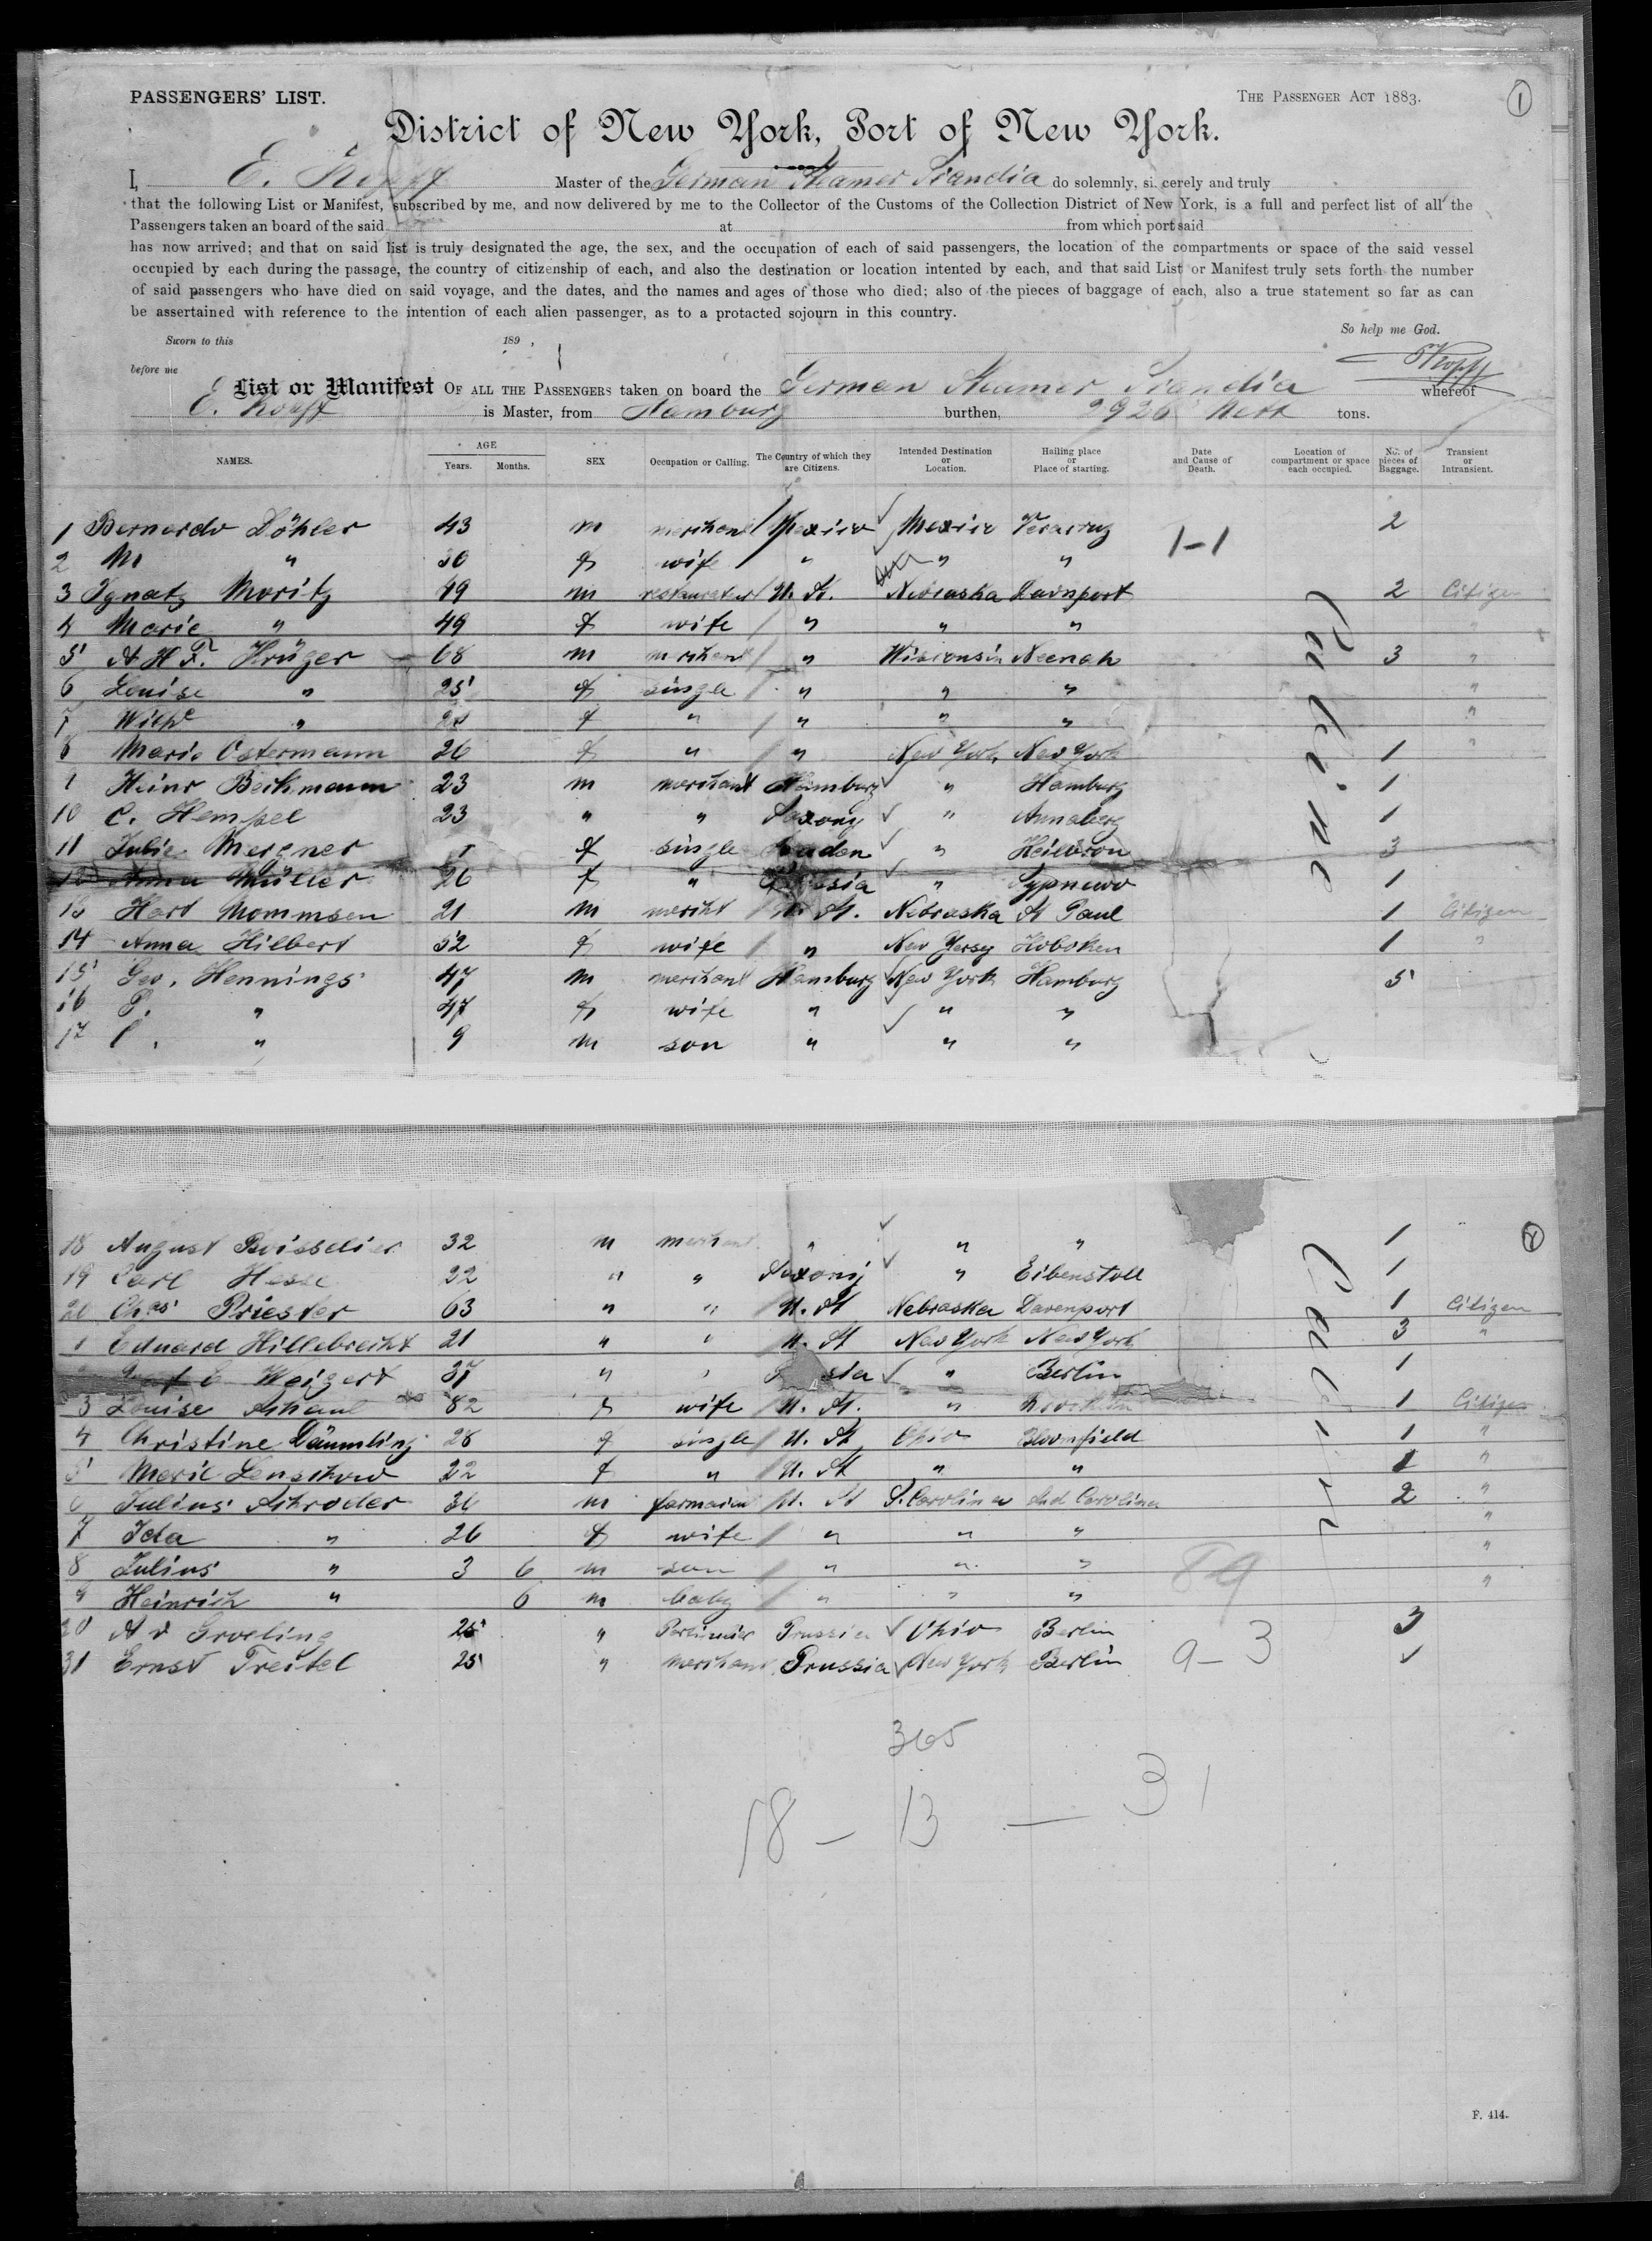 PASSENGERS' LIST.
THE PASSENGER ACT 1883.
1
District of New York, Port of New York.
I, E. Kopff Master of the German Steamer Scandia do solemnly, sincerely and truly
that the following List or Manifest, subscribed by me, and now delivered by me to the Collector of the Customs of the Collection District of New York, is a full and perfect list of all the
Passengers taken an board of the said at from which port said
has now arrived; and that on said list is truly designated the age, the sex, and the occupation of each of said passengers, the location of the compartments or space of the said vessel
occupied by each during the passage, the country of citizenship of each, and also the destination or location intented by each, and that said List or Manifest truly sets forth the number
of said passengers who have died on said voyage, and the dates, and the names and ages of those who died; also of the pieces of baggage of each, also a true statement so far as can
be assertained with reference to the intention of each alien passenger, as to a protacted sojourn in this country.
So help me God.
Sworn to this 189 ,
EKopff
before me
List or Manifest OF ALL THE PASSENGERS taken on board the German Steamer Scandia whereof
E. Kopff is Master, from Hamburg burthen, 2926 Nett tons.
NAMES. AGE Years. Months. SEX Occupation or Calling. The Country of which they are Citizens. Intended Destination or Location. Hailing place or Place of starting. Date and Cause of Death. Location of compartment or space each occupied. No. of pieces of Baggage. Transient or Intransient.
1 Bernardo Döhler 43 m merchant Mexico Mexico Veracruz 1-1 2
2 M " 30 f wife " " "
3 Ignatz Moritz 49 m restaurateur U. St. Nebraska Davnport 2 Citizen
4 Marie " 49 f wife " " " "
5 A H F. Krüger 68 m merchant " Wisconsin Neenah 3 "
6 Louise " 25 f single " " " "
7 Wilhe " f " " " " "
8 Marie Ostermann 26 f " " New York New York 1 "
Heinr Beckmann 23 m merchant Hamburg " Hamburg 1
10 C. Hempel 23 " " Saxony " Annaberg 1
11 Julie Mergner f single Baden " Heilbron 3
12 Anna Müller 26 f " Prussia " Sypnewo 1
13 Hart Mommsen 21 m mercht U. St. Nebraska St Paul 1 Citizen
14 Anna Hilbert 52 f wife " New Yersey Hoboken 1 "
15 Geo. Hennings 47 m merchant Hamburg New York Hamburg 5
16 P. " 47 f wife " " "
17 " 9 m son " " "
Cabine
2
18 August Boisselier 32 m merchant " " " 1
19 Carl Hesse 22 " " Saxony " Eibenstoll 1
20 Chas Priester 63 " " U. St Nebraska Davenport 1 Citizen
1 Eduard Hillebrecht 21 " " U. St New York New York 3 "
E Weigert 37 " " Prussia " Berlin 1
3 Louise Schaul 82 f wife U. St. " 1 Citizen
4 Christine Däumling 28 f single U. St Ohio Bloomfield 1 "
5 Marie Lenschow 22 f " U. St " " 1 "
6 Julius Schroder 36 m U. St S. Carolina Carolina 2 "
7 Ida " 26 f wife " " " "
8 Julius " 3 6 m son " " " "
9 Heinrich " 6 m baby " " " "
30 A v Groeling 25 " Prussia Ohio Berlin 3
31 Ernst Treitel 25 " merchant Prussia New York Berlin
Cabine
89
9-3
365
18 - 13 - 31
F. 414.